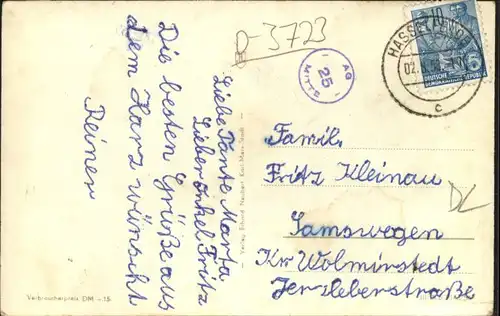 D-3723
AG
25
MITTE
HASSELFELDE
02.
c
10
5
DEUTSCHE
DEMOKRATISCHE REPUBLIK
Liebe Tante Marta
Lieber Onkel Fritz
Die besten Grüße aus
dem Harz wünscht
Reiner
Famil.
Fritz Kleinau
Samswegen
Kr Wolmirstedt
Jerzleberstraße
DL
Verlag Erhard Neubert Karl-Marx-Stadt
Verbraucherpreis DM -.15